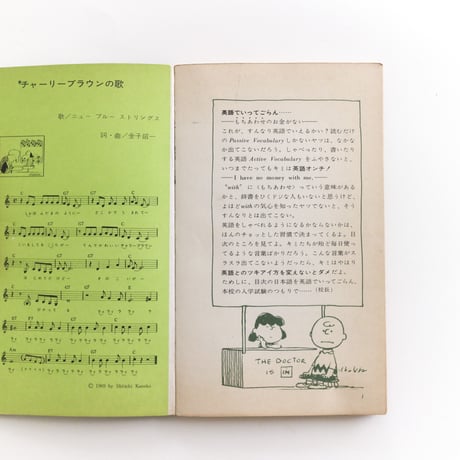 *チャーリーブラウンの歌
歌／ニュー ブルー ストリングス
詞・曲／金子詔一
© 1969 by Shōichi Kaneko
英語でいってごらん……
——もちあわせのお金がない——
これが、すんなり英語でいえるかい？ 読むだけ
の Passive Vocabulary しかないヤツは、なかな
か出てこないだろう。しゃべったり、書いたり
する英語 Active Vocabulary をふやさないと、
いつまでたってもキミは英語オンチ！
——I have no money with me.——
"with" に〈もちあわせ〉っていう意味がある
かと、辞書をひくドジな人もいないと思うけど、
よほど with の気心を知ったヤツでないと、そう
すんなりとは出てこない。
英語をしゃべれるようになるかならないかは、
ほんのチョッとした習慣で決まってくるよ。目
次のところを見てよ。キミたちが殆ど毎日使っ
てるような言葉ばかりだろう。こんな言葉がス
ラスラ出てこないようだったら、キミはやはり
英語とのツキアイ方を変えないとダメだよ。
ためしに、目次の日本語を英語でいってごらん。
本校の入学試験のつもりで……（校長）
THE DOCTOR
IS IN
1